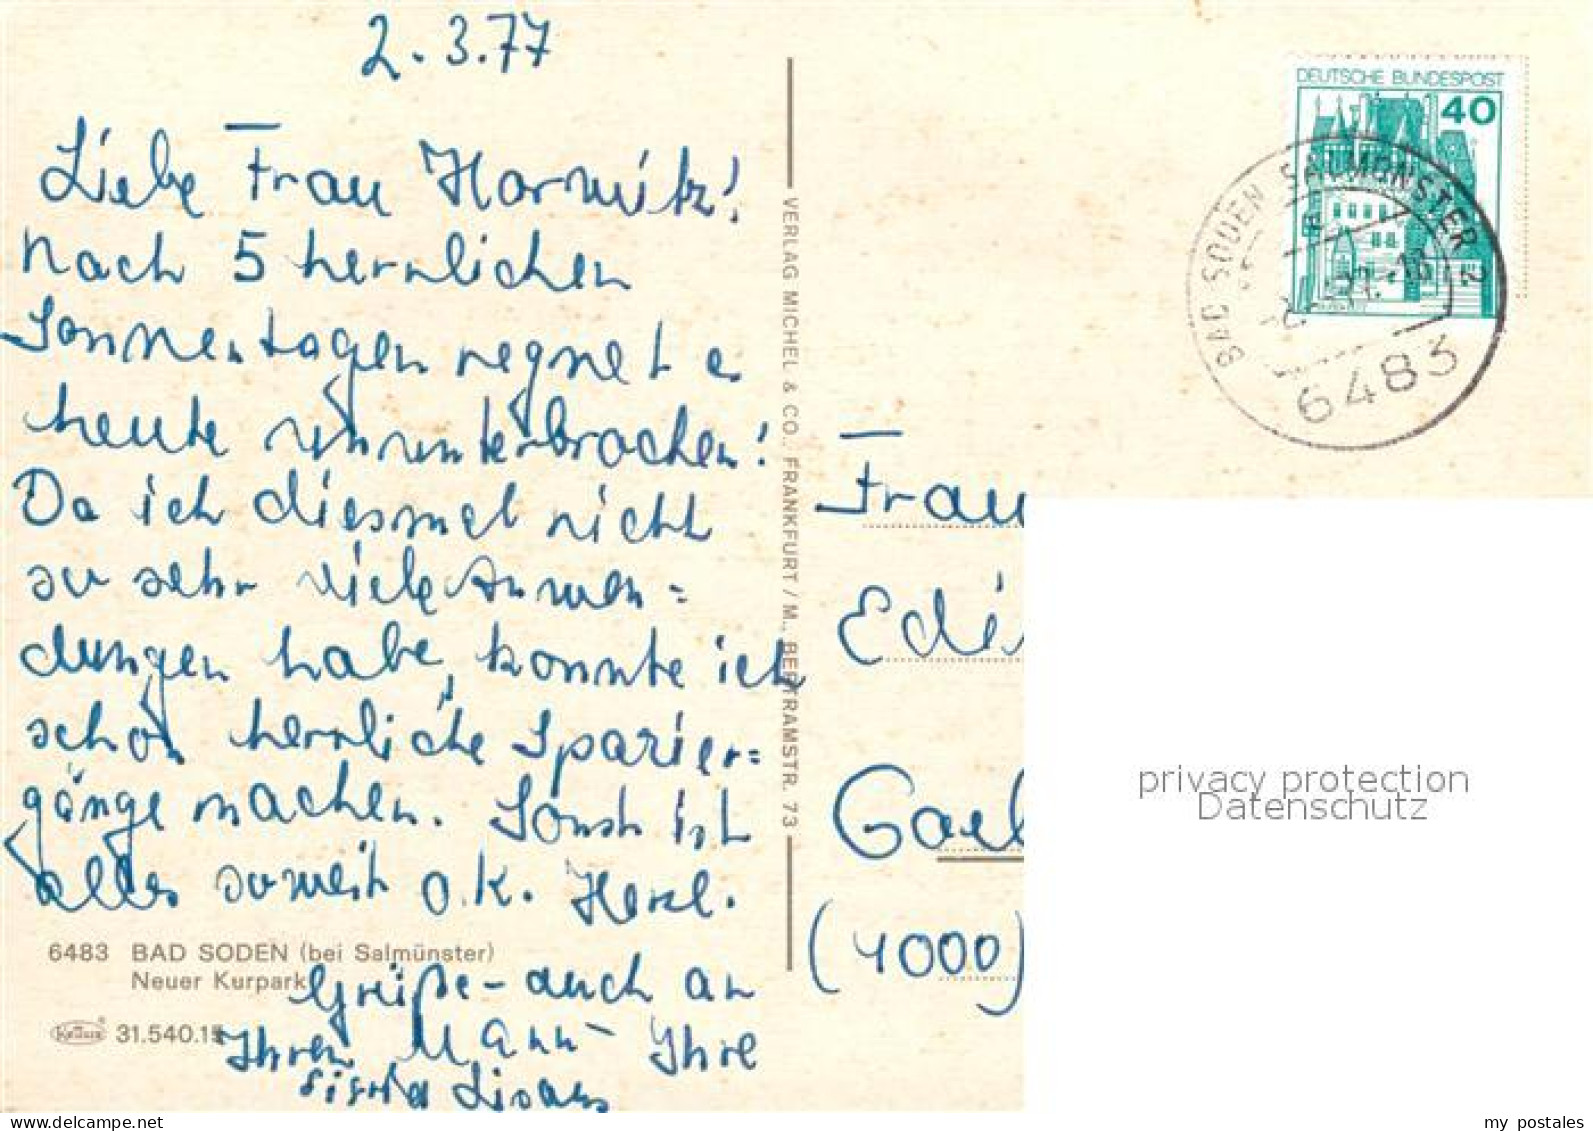 2.3.77
Liebe Frau Horwitz!
Nach 5 herrlichen
Sonnentagen regnet es
heute ununterbrochen!
Da ich diesmal nicht
so sehr viele Anwen=
dungen habe, konnte ich
schon herrliche Spazier=
gänge machen. Sonst ist
alles soweit o.k. Herzl.
Grüße - auch an
Ihren Mann - Ihre
6483 BAD SODEN (bei Salmünster)
Neuer Kurpark
31.540.15
VERLAG MICHEL & CO., FRANKFURT / M., BERTRAMSTR. 73
DEUTSCHE BUNDESPOST
40
BAD SODEN SALMÜNSTER 2
6483
Frau
Edi
(4000)
privacy protection
Datenschutz
www.delcampe.net
my_postales